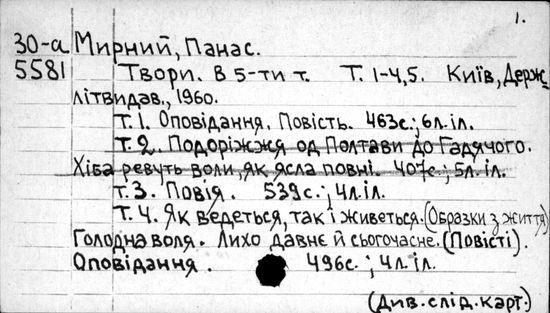 1.
30-а Мирний, Панас.
5581 Твори. В 5-ти т. Т. 1-4,5. Київ, Держ-
літвидав., 1960.
Т. 1. Оповідання. Повість. 463с.; 6л. іл.
Т. 2. Подоріжжя од Полтави до Гадячого.
Хіба ревуть воли, як ясла повні. 407с.; 5л. іл.
Т. 3. Повія. 539с.; 4л. іл.
Т. 4. Як ведеться, так і живеться. (Образки з життя)
Голодна воля. Лихо давнє й сьогочасне. (Повісті).
Оповідання. 496с.; 4л. іл.
(Див. слід. карт.)